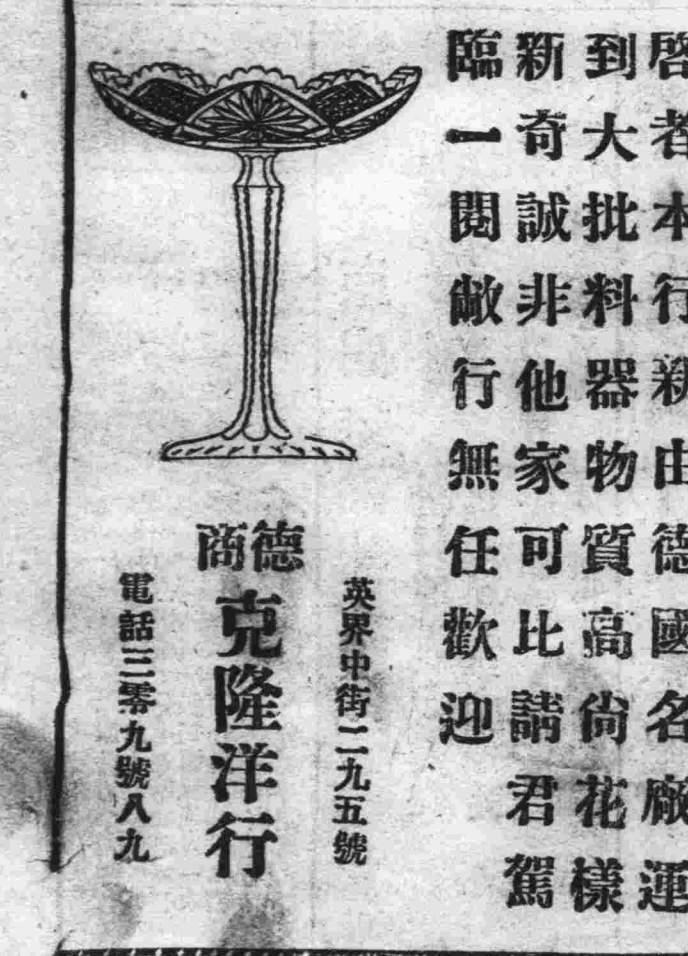 啓者本行新由德國名廠運
到大批料器物質高尙花樣
新奇誠非他家可比請君駕
臨一閱敝行無任歡迎
英界中街二九五號
德商
克隆洋行
電話三零九號八九